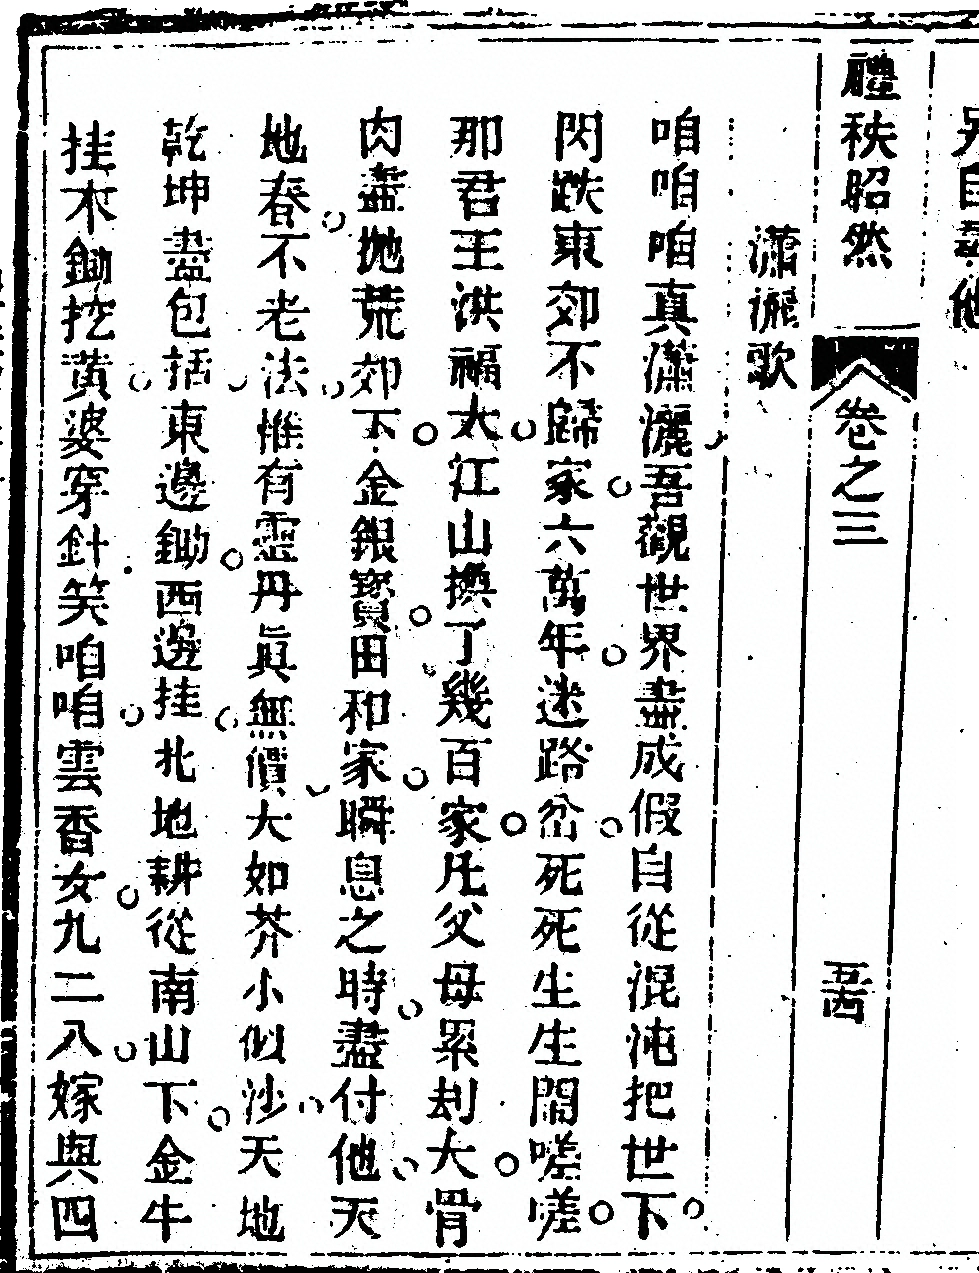 禮秩昭然 卷之三
瀟灑歌
咱咱咱真瀟灑吾觀世界盡成假自從混沌把世下
閃跌東郊不歸家六萬年迷路岔死死生生鬧嗟嗟
那君王洪福大江山換了幾百家凡父母累刦大骨
肉盡拋荒郊下金銀寶田和家瞬息之時盡付他天
地春不老法惟有靈丹眞無價大如芥小似沙天地
乾坤盡包括東邊鋤西邊挂北地耕從南山下金牛
挂木鋤挖黃婆穿針笑咱咱雲香女九二八嫁與四